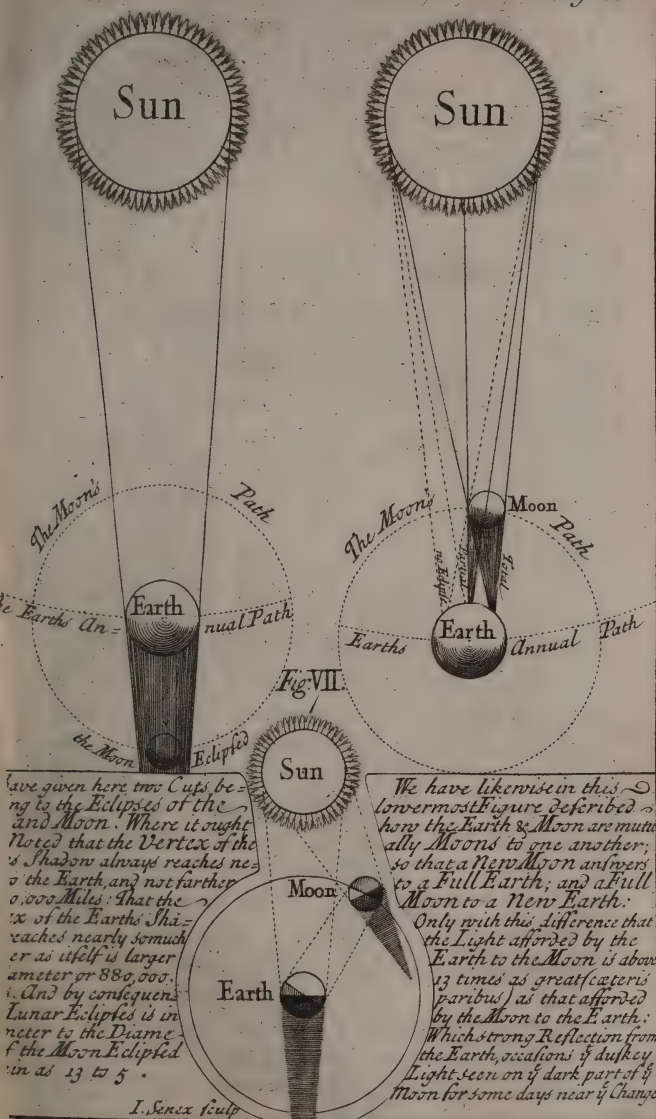 Sun
Sun
The Moon's Path
Earth
Earths An= nual Path
the Moon Eclipsed
The Moon's Path
Moon
no Eclipse
Partial
Total
Earth
Earths Annual Path
Fig: VII.
Sun
Moon
Earth
ave given here two Cuts be=
ng to the Eclipses of the
and Moon. Where it ought
Noted that the Vertex of the
s Shadow always reaches ne=
o the Earth, and not farther
0,000 Miles: That the
ex of the Earths Sha=
reaches nearly somuch
er as itself is larger
ameter or 880,000.
And by consequen
Lunar Eclipses is in
meter to the Diame=
f the Moon Eclipsed
in as 13 to 5.
I. Senex sculp
We have likewise in this
lowermost Figure described
how the Earth & Moon are mutu
ally Moons to one another;
so that a New Moon answers
to a Full Earth; and a Full
Moon to a New Earth:
Only with this difference that
the Light afforded by the
Earth to the Moon is above
13 times as great (cæteris
paribus) as that afforded
by the Moon to the Earth:
Which strong Reflection from
the Earth, occasions ÿ duskey
Light seen on ÿ dark part of ÿ
Moon for some days near ÿ Change